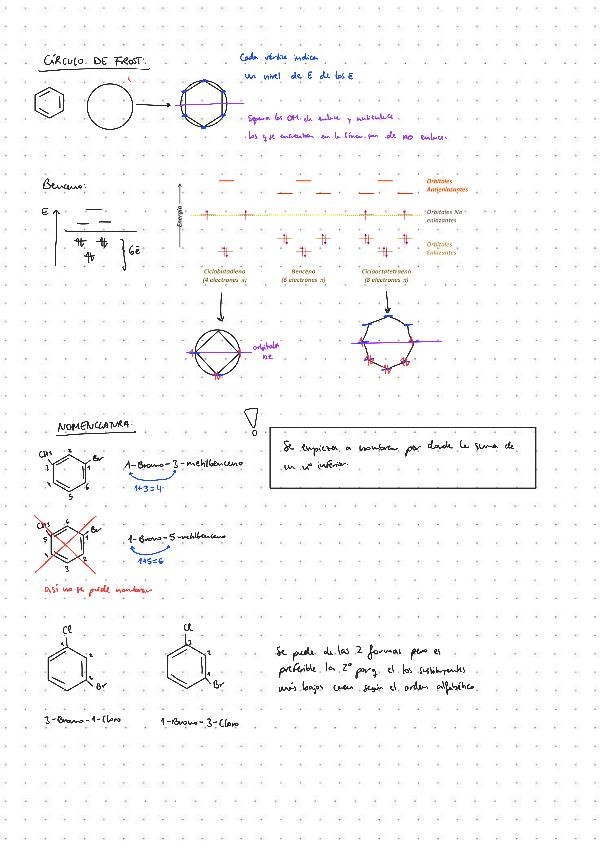 CÍRCULO DE FROST:
Cada vértice indica
un nivel de E de los E
Separa los OM de enlace y antienlace
los q se encuentran en la línea son de no enlace.
Benceno:
E
6e
Energía
Orbitales
Antienlazantes
Orbitales No
enlazantes
Orbitales
Enlazantes
Ciclobutadieno
(4 electrones π)
Benceno
(6 electrones π)
Ciclooctatetraeno
(8 electrones π)
orbitales
NE
NOMENCLATURA:
Se empieza a nombrar por donde la suma de
un nº inferior.
CH3 Br
1 2 3 4 5 6
1-Bromo-3-metilbenceno
1+3=4
CH3 Br
1 2 3 4 5 6
1-Bromo-5-metilbenceno
1+5=6
así no se puede nombrar
Cl
1 2 3
Br
Cl
3 2 1
Br
Se puede de las 2 formas pero es
preferible la 2º porq el los sustituyentes
más bajos según el orden alfabético.
3-Bromo-1-Cloro
1-Bromo-3-Cloro